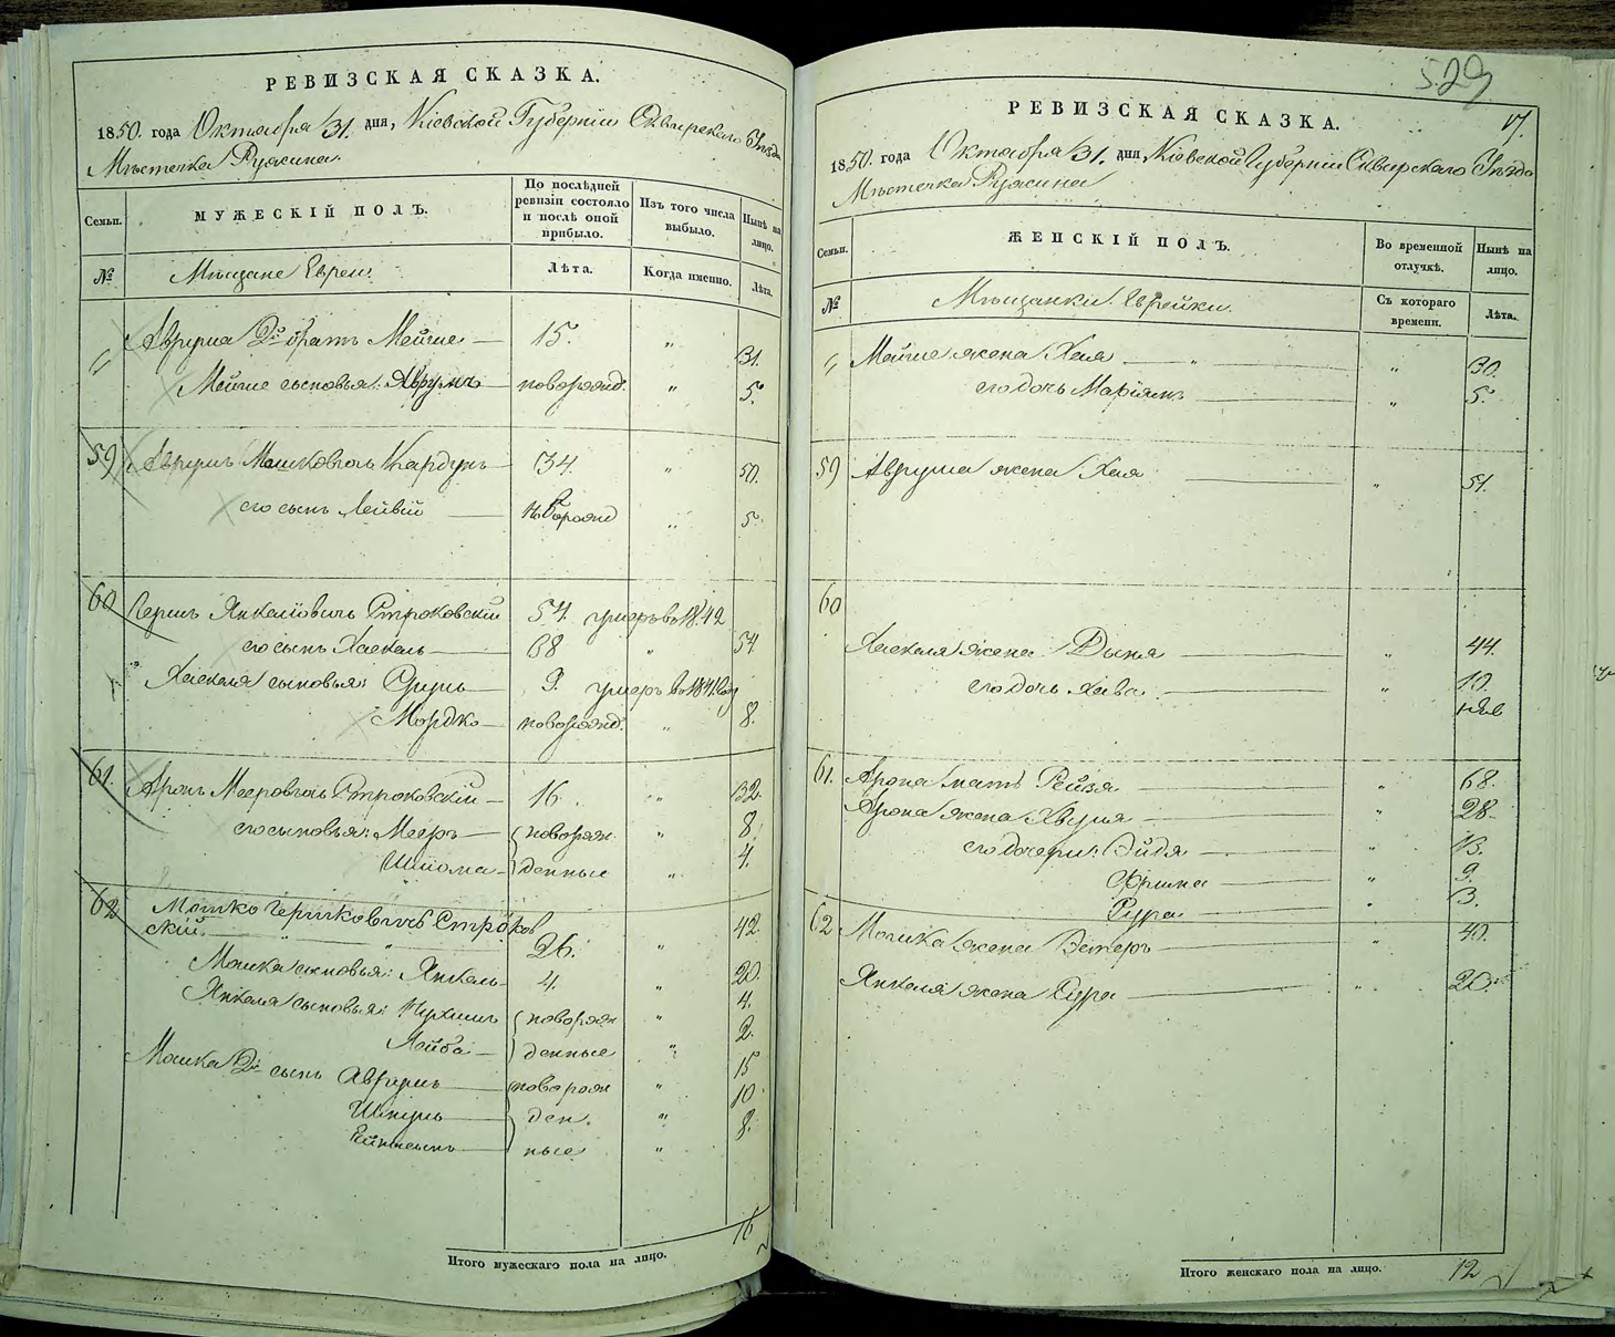 РЕВИЗСКАЯ СКАЗКА.
1850. года Октября 31. дня, Кіевской Губерніи Сквирскаго Уѣзда
Мѣстечка Ружина.
Семьи.
МУЖЕСКІЙ ПОЛЪ.
По послѣдней ревизіи состояло и послѣ оной прибыло.
Изъ того числа выбыло.
Нынѣ на лицо.
№
Мѣщане Евреи.
Лѣта.
Когда именно.
Лѣта.
" Аврума 2й братъ Мейше — 15. " 31.
Мейше сыновья: Аврумъ — новорожд. " 5.
59 Аврумъ Мошковичь — 34. " 50.
его сынъ Лейвій — новорожд " 5.
60 Гершъ Янкелiовичъ Строковскій 54. умеръ во 1842
его сынъ Хаскель — 38 " 54
Хаскеля сыновья: Срулъ — 9. умеръ во 1841 году
Мордко — новорожд. " 8.
61. Аронъ Мееровичь Строковскій — 16. " 32.
его сыновья: Мееръ — новорож " 8.
Шліома — денные " 4.
62 Мошко Гершковичъ Строков
скій. " " 26. " 42.
Мошка сыновья: Янкель — 4. " 20.
Янкеля сыновья: новорож " 4.
Лейба — денные " 2.
Мошка 2й сынъ Аврумъ — новорож " 15
Шмуль — ден. " 10.
ные " 8.
Итого мужескаго пола на лицо. 16
529
РЕВИЗСКАЯ СКАЗКА.
1850. года Октября 31. дня, Кіевской Губерніи Сквирскаго Уѣзда
Мѣстечка Ружина
Семьи.
ЖЕНСКІЙ ПОЛЪ.
Во временной отлучкѣ.
Нынѣ на лицо.
№
Мѣщанки Еврейки.
Съ котораго времени.
Лѣта.
" Мейше жена Хая — " " 30.
его дочь Маріямъ — " 5.
59 Аврума жена Хая — " 51.
60
Хаскеля жена Дыня — " 44.
его дочь — " 10.
61. Арона мать Рейзя — " 68.
Арона жена — " 28.
его дочери: Эйдя — " 13.
Фрима — " 9.
Сура — " 3.
62 Мошка жена Эстеръ — " 40.
Янкеля жена Сура — " 20.
Итого женскаго пола на лицо. 12